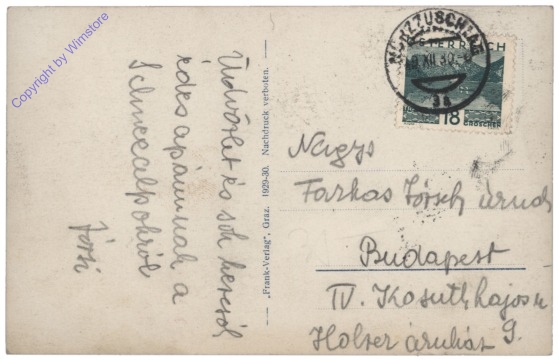 Copyright by Wimstore
Üdvözlet és sok
édes apámnak a
Schneealpokról
Józsi
„Frank-Verlag“, Graz. 1929-30. Nachdruck verboten.
MÜRZZUSCHLAG
XII. 30
3a
ÖSTERREICH
18
GROSCHEN
Nagys
Farkas József úrnak
Budapest
IV. Kosuth Lajos u
Holzer áruház 9.